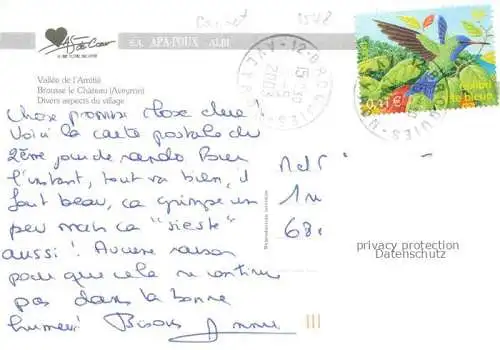 AS de Cœur
S.A. APA-POUX - ALBI
Vallée de l'Amitié
Brousse le Château (Aveyron)
Divers aspects du village
12-BROQUIES
AVEYRON
15 30
2003
0,41 €
Chose promise chose due!
Voici la carte postale du
2ème jour de rando. Pour
l'instant, tout va bien, il
fait beau, ça grimpe un
peu mais ça "sieste"
aussi! Aucune raison
pour que cela ne continue
pas dans la bonne
humeur! Bisous
Reproduction interdite
1 
68
privacy protection
Datenschutz